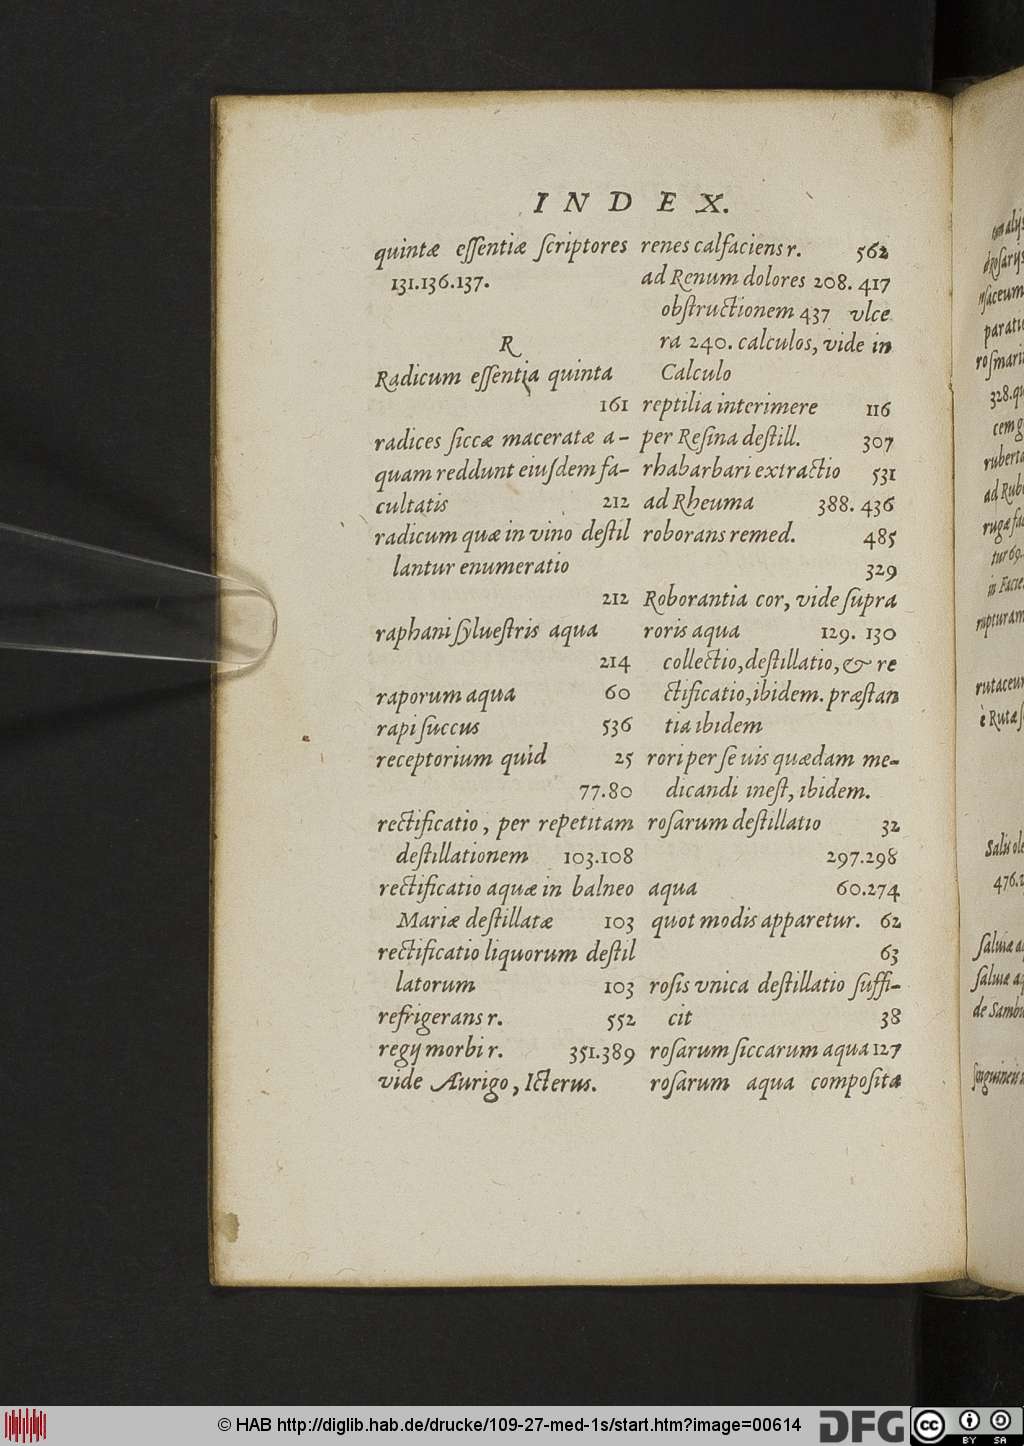 INDEX.
quintæ essentiæ scriptores
131.136.137.
R
Radicum essentia quinta
161
radices siccæ maceratæ a-
quam reddunt eiusdem fa-
cultatis 212
radicum quæ in vino destil
lantur enumeratio
212
raphani syluestris aqua
214
raporum aqua 60
rapi succus 536
receptorium quid 25
77.80
rectificatio, per repetitam
destillationem 103.108
rectificatio aquæ in balneo
Mariæ destillatæ 103
rectificatio liquorum destil
latorum 103
refrigerans r. 552
regij morbi r. 351.389
vide Aurigo, Icterus.
renes calfaciens r. 562
ad Renum dolores 208. 417
obstructionem 437 vlce
ra 240. calculos, vide in
Calculo
reptilia interimere 116
per Resina destill. 307
rhabarbari extractio 531
ad Rheuma 388. 436
roborans remed. 485
329
Roborantia cor, vide supra
roris aqua 129. 130
collectio, destillatio, & re
ctificatio, ibidem. præstan
tia ibidem
rori per se uis quædam me-
dicandi inest, ibidem.
rosarum destillatio 32
297.298
aqua 60.274
quot modis apparetur. 62
63
rosis vnica destillatio suffi-
cit 38
rosarum siccarum aqua 127
rosarum aqua composita
328.qu
cem g
ruberta
ad Rub
rugæ fa
tur 69.
in Facie.
rupturam
rutaceum
è Rutæ s
Salis ole
476.2
saluiæ aq
saluiæ aq
de Sambu
© HAB http://diglib.hab.de/drucke/109-27-med-1s/start.htm?image=00614
DFG
cc BY SA